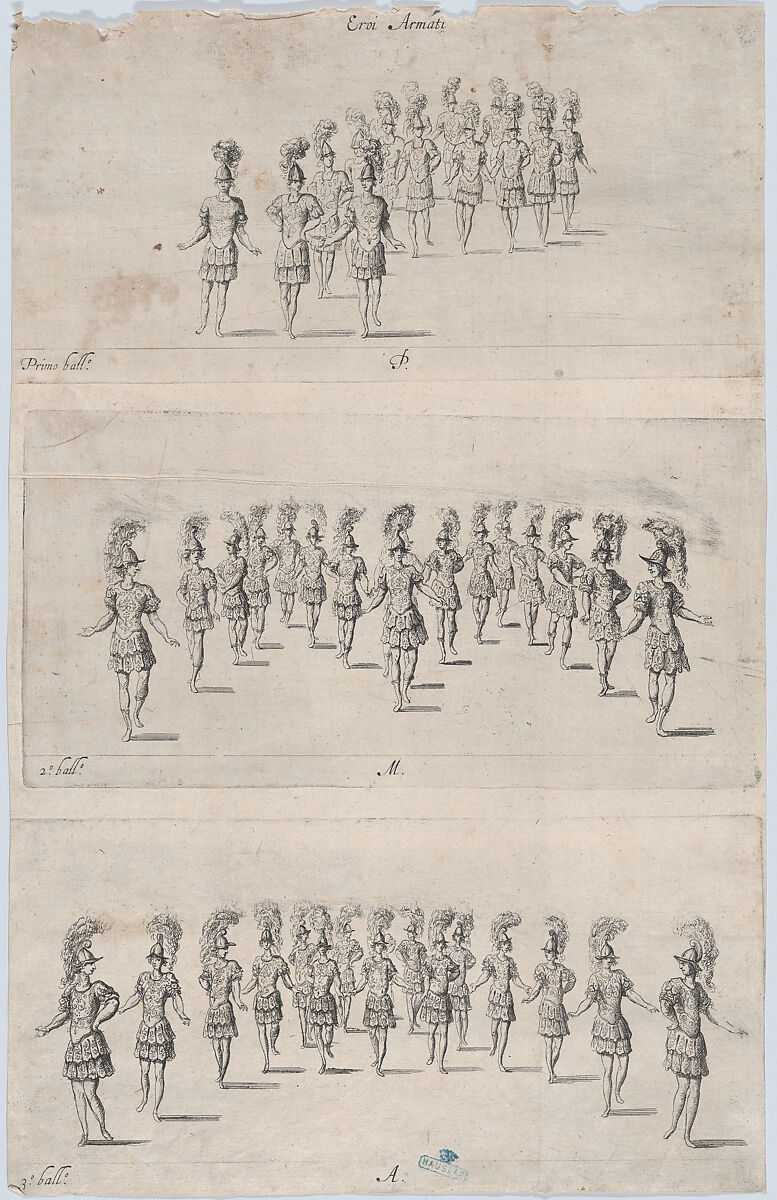 Eroi Armati
Primo ball.º P.
2.º ball.º M.
3.º ball.º A.
HAUSLAB